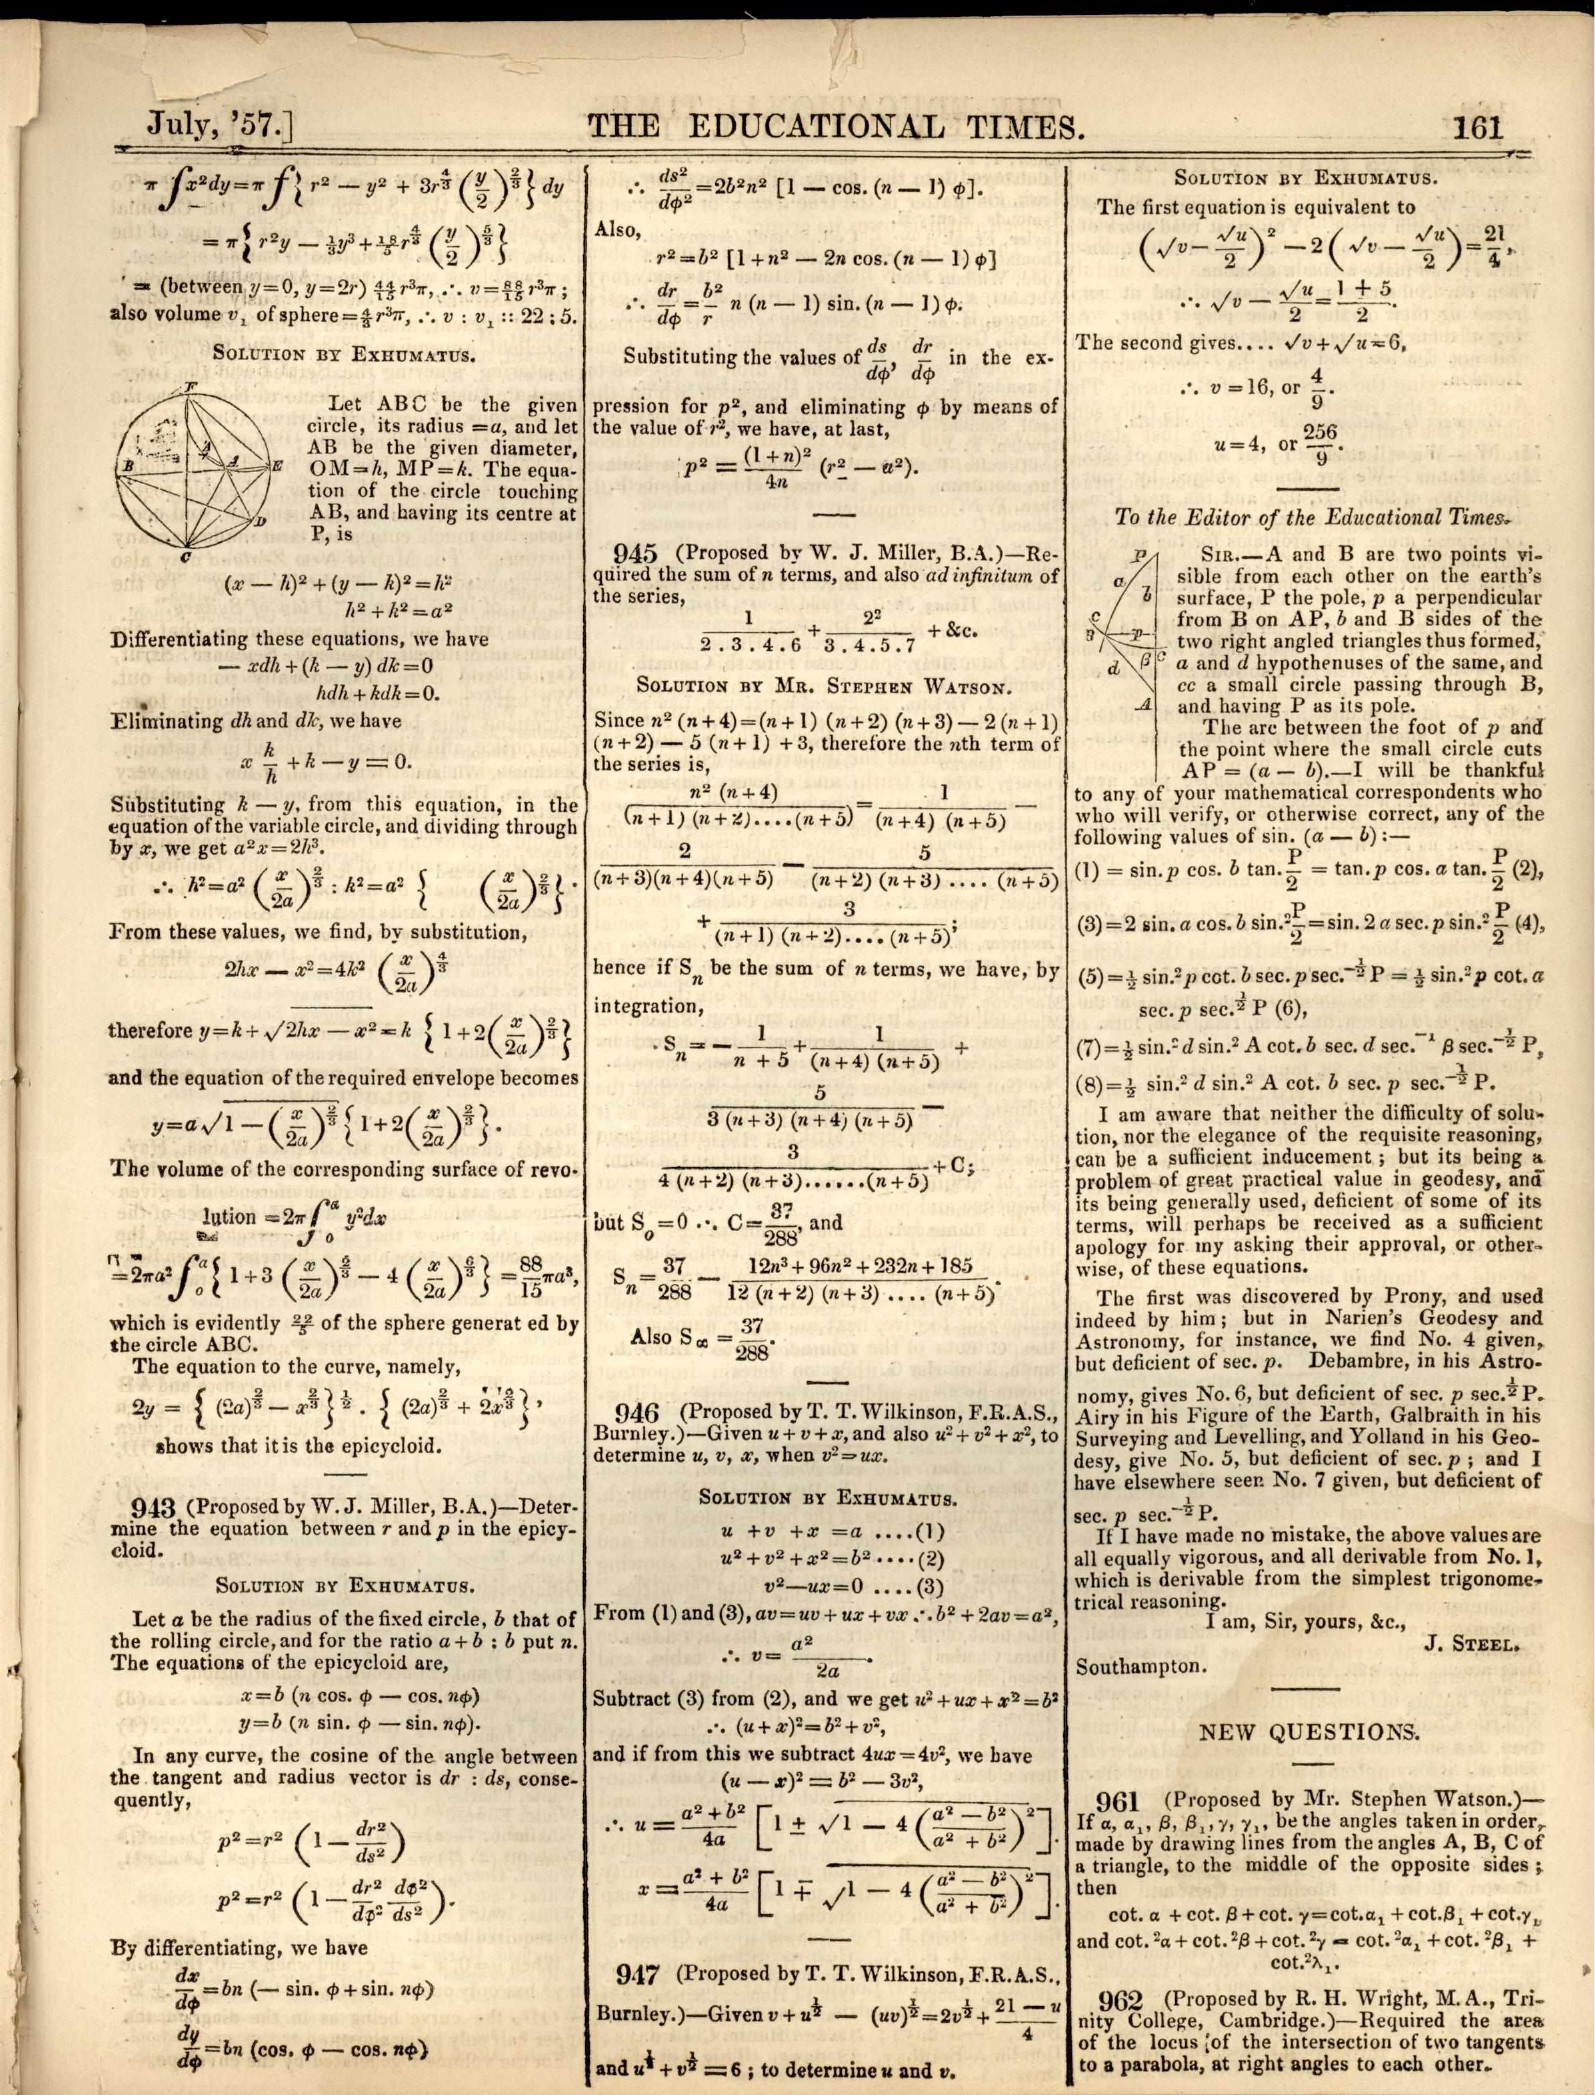 July, '57.]
THE EDUCATIONAL TIMES.
161
π ∫ x²dy = π ∫ { r² — y² + 3r^{4/3} (y/2)^{2/3} } dy
= π { r²y — ⅓y³ + 18/5 r^{4/3} (y/2)^{5/3} }
= (between y=0, y=2r) 44/15 r³π, ∴ v = 88/15 r³π ;
also volume v₁ of sphere = 4/3 r³π, ∴ v : v₁ :: 22 : 5.
SOLUTION BY EXHUMATUS.
F
B
A
E
D
C
Let ABC be the given
circle, its radius =a, and let
AB be the given diameter,
OM=h, MP=k. The equa-
tion of the circle touching
AB, and having its centre at
P, is
(x — h)² + (y — k)² = k²
h² + k² = a²
Differentiating these equations, we have
— xdh + (k — y) dk = 0
hdh + kdk = 0.
Eliminating dh and dk, we have
x k/h + k — y = 0.
Substituting k — y, from this equation, in the
equation of the variable circle, and dividing through
by x, we get a²x = 2h³.
∴ h² = a² (x/2a)^{2/3} : k² = a² { (x/2a)^{2/3} } .
From these values, we find, by substitution,
2hx — x² = 4k² (x/2a)^{4/3}
therefore y = k + √2hx — x² = k { 1 + 2 (x/2a)^{2/3} }
and the equation of the required envelope becomes
y = a √1 — (x/2a)^{2/3} { 1 + 2 (x/2a)^{2/3} } .
The volume of the corresponding surface of revo-
lution = 2π ∫₀^a y²dx
= 2πa² ∫₀^a { 1 + 3 (x/2a)^{2/3} — 4 (x/2a)^{6/3} } = 88/15 πa³,
which is evidently 22/5 of the sphere generat ed by
the circle ABC.
The equation to the curve, namely,
2y = { (2a)^{2/3} — x^{2/3} }^{1/2} . { (2a)^{2/3} + 2x^{2/3} } ,
shows that it is the epicycloid.
943 (Proposed by W. J. Miller, B.A.)—Deter-
mine the equation between r and p in the epicy-
cloid.
SOLUTION BY EXHUMATUS.
Let a be the radius of the fixed circle, b that of
the rolling circle, and for the ratio a + b : b put n.
The equations of the epicycloid are,
x = b (n cos. φ — cos. nφ)
y = b (n sin. φ — sin. nφ).
In any curve, the cosine of the angle between
the tangent and radius vector is dr : ds, conse-
quently,
p² = r² (1 — dr²/ds²)
p² = r² (1 — dr²/dφ² dφ²/ds²).
By differentiating, we have
dx/dφ = bn (— sin. φ + sin. nφ)
dy/dφ = bn (cos. φ — cos. nφ)
∴ ds²/dφ² = 2b²n² [1 — cos. (n — 1) φ].
Also,
r² = b² [1 + n² — 2n cos. (n — 1) φ]
∴ dr/dφ = b²/r n (n — 1) sin. (n — 1) φ.
Substituting the values of ds/dφ, dr/dφ in the ex-
pression for p², and eliminating φ by means of
the value of r², we have, at last,
p² = (1 + n)²/4n (r² — a²).
945 (Proposed by W. J. Miller, B.A.)—Re-
quired the sum of n terms, and also ad infinitum of
the series,
1/2 . 3 . 4 . 6 + 2²/3 . 4 . 5 . 7 + &c.
SOLUTION BY MR. STEPHEN WATSON.
Since n² (n+4) = (n+1) (n+2) (n+3) — 2 (n+1)
(n+2) — 5 (n+1) + 3, therefore the nth term of
the series is,
n² (n+4)/(n+1) (n+2)....(n+5) = 1/(n+4) (n+5) —
2/(n+3)(n+4)(n+5) — 5/(n+2) (n+3) .... (n+5)
+ 3/(n+1) (n+2).... (n+5) ;
hence if Sₙ be the sum of n terms, we have, by
integration,
Sₙ = — 1/n + 5 + 1/(n+4) (n+5) +
5/3 (n+3) (n+4) (n+5) —
3/4 (n+2) (n+3)......(n+5) + C;
but S₀ = 0 ∴ C = 37/288, and
Sₙ = 37/288 — 12n³ + 96n² + 232n + 185/12 (n+2) (n+3) .... (n+5).
Also S∞ = 37/288.
946 (Proposed by T. T. Wilkinson, F.R.A.S.,
Burnley.)—Given u + v + x, and also u² + v² + x², to
determine u, v, x, when v² = ux.
SOLUTION BY EXHUMATUS.
u + v + x = a ....(1)
u² + v² + x² = b² ....(2)
v² — ux = 0 ....(3)
From (1) and (3), av = uv + ux + vx ∴ b² + 2av = a²,
∴ v = a²/2a .
Subtract (3) from (2), and we get u² + ux + x² = b²
∴ (u + x)² = b² + v²,
and if from this we subtract 4ux = 4v², we have
(u — x)² = b² — 3v²,
∴ u = a² + b²/4a [1 ± √1 — 4 (a² — b²/a² + b²)²].
x = a² + b²/4a [1 ∓ √1 — 4 (a² — b²/a² + b²)²].
947 (Proposed by T. T. Wilkinson, F.R.A.S.,
Burnley.)—Given v + u^{1/2} — (uv)^{1/2} = 2v^{1/2} + 21 — u/4
and u^{1/2} + v^{1/2} = 6 ; to determine u and v.
SOLUTION BY EXHUMATUS.
The first equation is equivalent to
(√v — √u/2)² — 2 (√v — √u/2) = 21/4,
∴ √v — √u/2 = 1 + 5/2.
The second gives.... √v + √u = 6,
∴ v = 16, or 4/9.
u = 4, or 256/9.
To the Editor of the Educational Times.
P
a
b
C
B
p
d
β
c
A
SIR.—A and B are two points vi-
sible from each other on the earth's
surface, P the pole, p a perpendicular
from B on AP, b and B sides of the
two right angled triangles thus formed,
a and d hypothenuses of the same, and
cc a small circle passing through B,
and having P as its pole.
The arc between the foot of p and
the point where the small circle cuts
AP = (a — b).—I will be thankful
to any of your mathematical correspondents who
who will verify, or otherwise correct, any of the
following values of sin. (a — b) :—
(1) = sin. p cos. b tan. P/2 = tan. p cos. a tan. P/2 (2),
(3) = 2 sin. a cos. b sin.² P/2 = sin. 2 a sec. p sin.² P/2 (4),
(5) = ½ sin.² p cot. b sec. p sec.^{-1/2} P = ½ sin.² p cot. a
sec. p sec.^{1/2} P (6),
(7) = ½ sin.² d sin.² A cot. b sec. d sec.^{-1} β sec.^{-1/2} P,
(8) = ½ sin.² d sin.² A cot. b sec. p sec.^{-1/2} P.
I am aware that neither the difficulty of solu-
tion, nor the elegance of the requisite reasoning,
can be a sufficient inducement ; but its being a
problem of great practical value in geodesy, and
its being generally used, deficient of some of its
terms, will perhaps be received as a sufficient
apology for my asking their approval, or other-
wise, of these equations.
The first was discovered by Prony, and used
indeed by him ; but in Narien's Geodesy and
Astronomy, for instance, we find No. 4 given,
but deficient of sec. p. Debambre, in his Astro-
nomy, gives No. 6, but deficient of sec. p sec.^{1/2} P.
Airy in his Figure of the Earth, Galbraith in his
Surveying and Levelling, and Yolland in his Geo-
desy, give No. 5, but deficient of sec. p ; and I
have elsewhere seen No. 7 given, but deficient of
sec. p sec.^{-1/2} P.
If I have made no mistake, the above values are
all equally vigorous, and all derivable from No. 1,
which is derivable from the simplest trigonome-
trical reasoning.
I am, Sir, yours, &c.,
J. STEEL.
Southampton.
NEW QUESTIONS.
961 (Proposed by Mr. Stephen Watson.)—
If α, α₁, β, β₁, γ, γ₁, be the angles taken in order,
made by drawing lines from the angles A, B, C of
a triangle, to the middle of the opposite sides ;
then
cot. α + cot. β + cot. γ = cot. α₁ + cot. β₁ + cot. γ₁,
and cot. ²α + cot. ²β + cot. ²γ = cot. ²α₁ + cot. ²β₁ +
cot. ²λ₁.
962 (Proposed by R. H. Wright, M.A., Tri-
nity College, Cambridge.)—Required the area
of the locus of the intersection of two tangents
to a parabola, at right angles to each other.